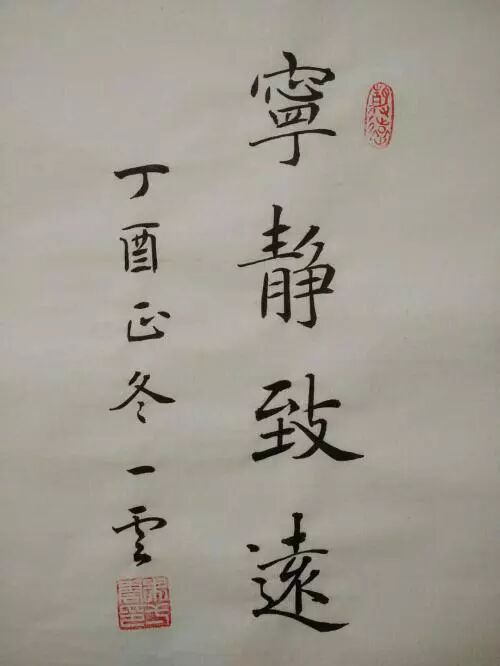 寧靜致遠
丁酉正冬一雲